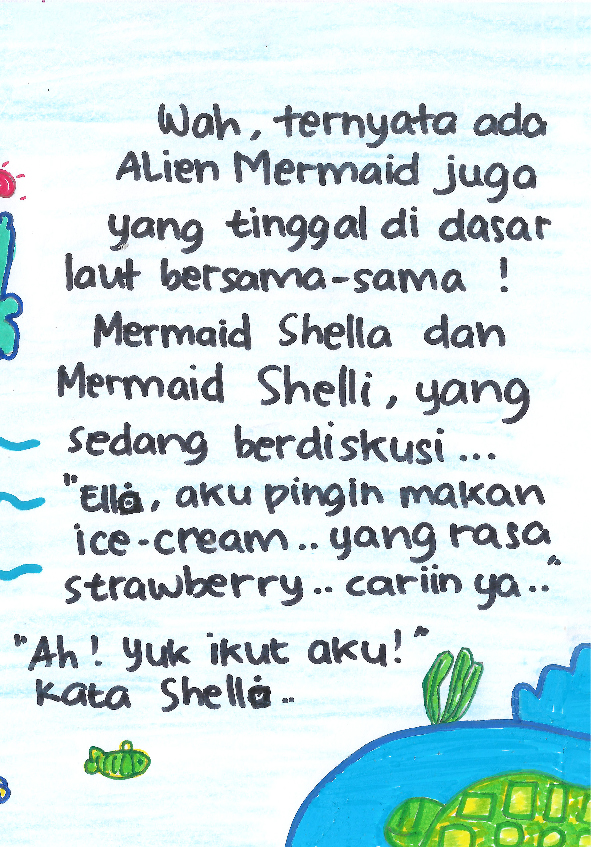 Wah, ternyata ada
ALien Mermaid juga
yang tinggal di dasar
laut bersama-sama !
Mermaid Shella dan
Mermaid Shelli, yang
sedang berdiskusi...
"Ella, aku pingin makan
ice-cream.. yang rasa
strawberry.. cariin ya.."
"Ah! Yuk ikut aku!"
kata Shella..